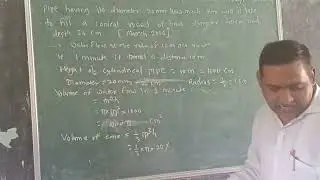 Pipe having the diameter 20mm how much time will it take
to fill a conical vessel of base diameter 40cm and
depth 24 cm [March 2016]
Water flow at the rate of 10m per minute
1 minute it travel a distance 10m
Height of cylindrical pipe = 10m = 1000 cm
Diameter = 20mm Radius =
Volume of water flow in 1 minute
= πr²h
= π× 1² × 1000
cm³
Volume of cone = 1/3 πr²h
= 1/3 × π × 20²